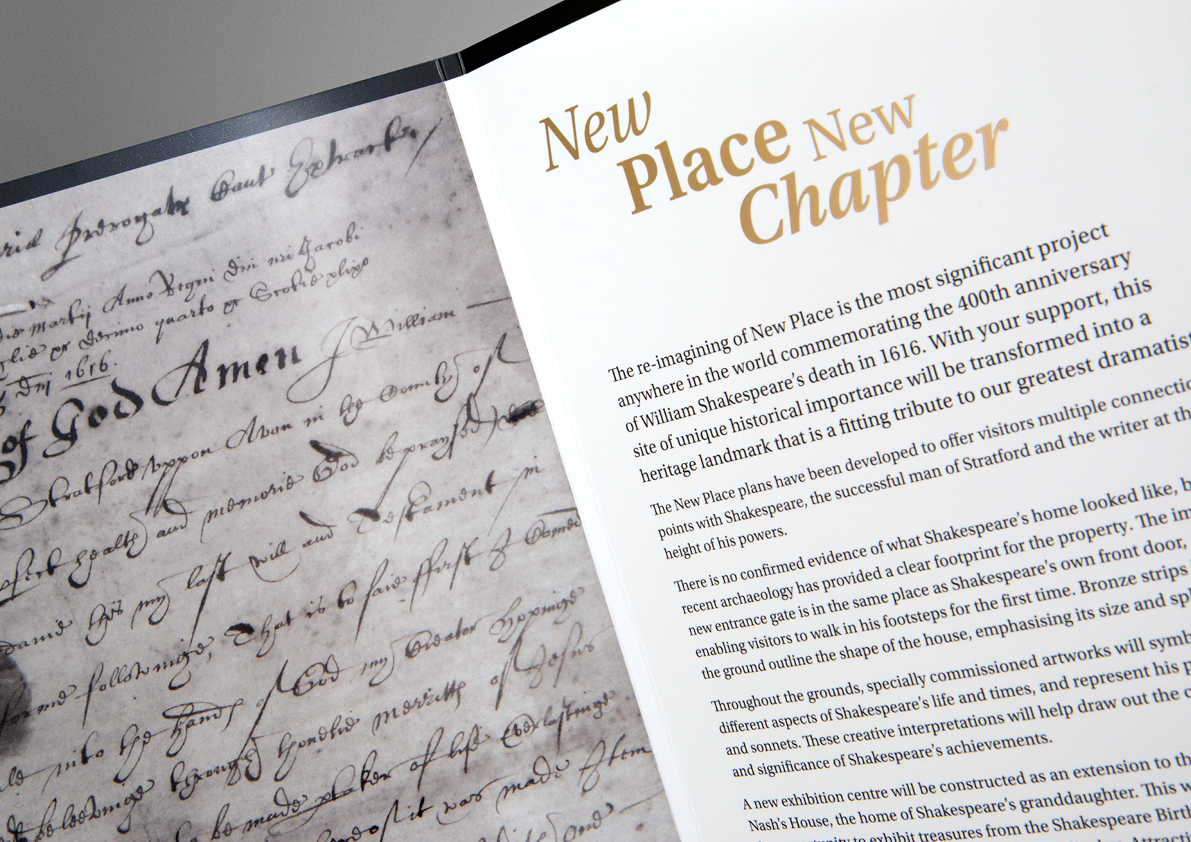 Anno Regni
decimo quarto
1616.
of God Amen J William
Stratford uppon Avon in
health and memorie God be praysed
my last will and Testament in
followinge, That is to saie ffirst I
into the hands of God my Creator hopinge
beleevinge through thonelie merritts of Jesus
be made ptaker of life Everlastinge
it was made Item
New
Place New
Chapter
The re-imagining of New Place is the most significant project
anywhere in the world commemorating the 400th anniversary
of William Shakespeare's death in 1616. With your support, this
site of unique historical importance will be transformed into a
heritage landmark that is a fitting tribute to our greatest dramatist
The New Place plans have been developed to offer visitors multiple connectio
points with Shakespeare, the successful man of Stratford and the writer at th
height of his powers.
There is no confirmed evidence of what Shakespeare's home looked like, b
recent archaeology has provided a clear footprint for the property. The im
new entrance gate is in the same place as Shakespeare's own front door,
enabling visitors to walk in his footsteps for the first time. Bronze strips
the ground outline the shape of the house, emphasising its size and spl
Throughout the grounds, specially commissioned artworks will symb
different aspects of Shakespeare's life and times, and represent his p
and sonnets. These creative interpretations will help draw out the c
and significance of Shakespeare's achievements.
A new exhibition centre will be constructed as an extension to th
Nash's House, the home of Shakespeare's granddaughter. This w
to exhibit treasures from the Shakespeare Birth